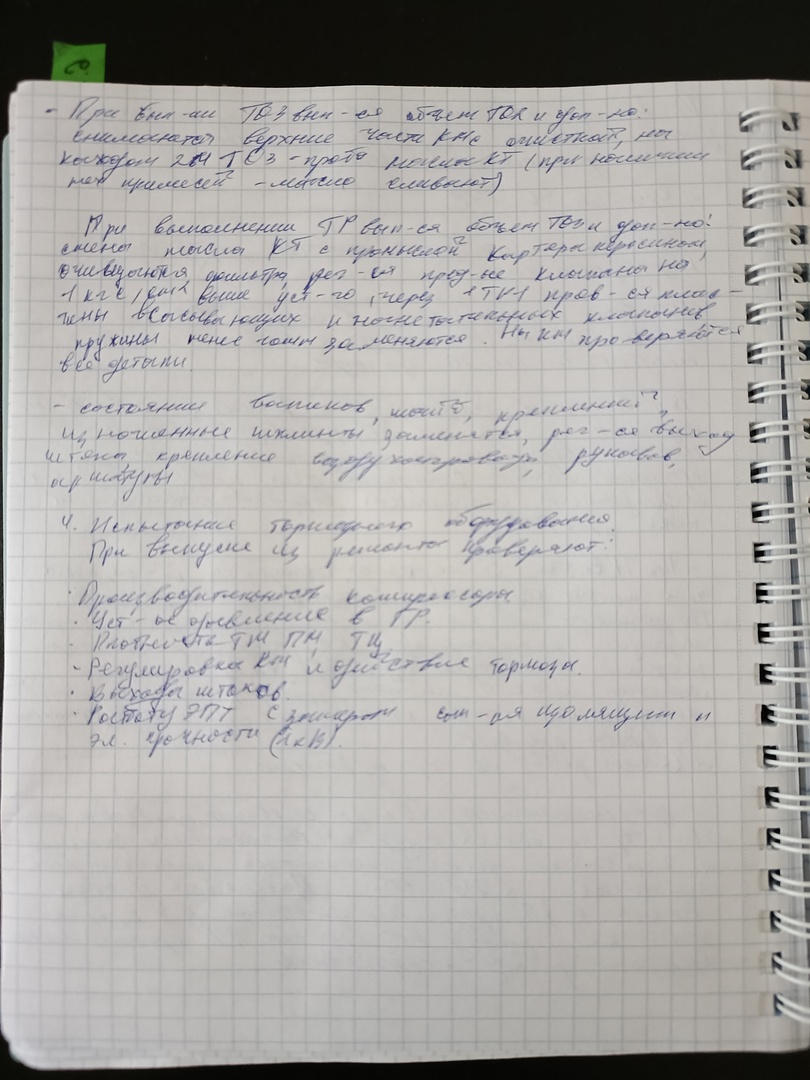 - При вып-ии ТО3 вып-ся объем ТО2 и доп-но:
снимаются верхние части КМ с очисткой, на
каждом 2ом ТО3 - проба масла КТ (при наличии
мех примесей - масло сливают)
При выполнении ТР вып-ся объем ТО3 и доп-но:
смена масла КТ с промывкой картера керосином,
очищаются фильтра, рег-ся пред-ые клапаны на
1 кгс/см² выше уст-го, через 1 ТР1 пров-ся клап-
аны всасывающих и нагнетательных клапанов
пружины менее заменяются. На КМ проверяются
все детали
- состояние валиков, креплений
изношенные шплинты заменятся, рег-ся выход
штока, крепление воздухопровода, рукавов,
арматуры
4. Испытание тормозного оборудования.
При выпуске из ремонта проверяют:
· Производительность компрессоры
· Уст-ое давление в ГР.
· Плотность ТМ ПМ, ТЦ
· Регулировка КМ и действие тормоза.
· Выходы штоков.
· Работу ЭПТ с замером соп-ия изоляции и
эл. прочности (1кВ).